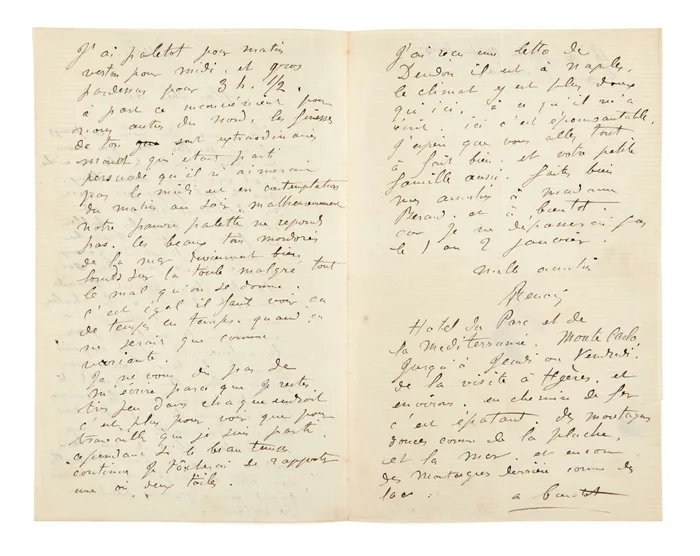 J'ai paletot pour matin
veston pour midi. et gros
pardessus pour 3 h. 1/2.
à part ce inconvénient pour
nous autres du nord, les finesses
de ton sont extraordinaires
qui etant parti
persuadé qu'il n'aimerait
pas le midi est en contemplation
du matin au soir. malheureusement
notre pauvre palette ne repond
pas. les beaux tons mordorés
de la mer deviennent bien
lourds sur la toile malgré tout
le mal qu'on se donne.
c'est égal il faut voir ça
de temps en temps. quand ça
ne serait que comme
variante.
Je ne vous dis pas de
m'écrire parce que je reste
très peu dans chaque endroit
c'est plus pour voir que pour
travailler que je suis parti.
cependant si le beau temps
continue je tâcherai de rapporter
une ou deux toiles.
J'ai reçu une lettre de
Deudon il est à Naples,
le climat y est plus doux
qu'ici, à ce qu'il m'a
écrit. ici c'est époustouflant,
J'espère que vous allez tout
à fait bien. et votre petite
famille aussi. faites bien
mes amitiés à madame
Berard. et à bientot.
car je ne dépasserai pas
le 1 ou 2 Janvier.
mille amitiés
Renoir
Hotel du Parc et de
la Mediterranee. Monte Carlo,
Jusqu'à Jeudi ou Vendredi.
de la visite à Hyères. et
environs. en chemin de fer
c'est épatant. des montagnes
douces comme de la pluche,
et la mer. et encore
des montagnes derrière comme des
lacs. a bientot